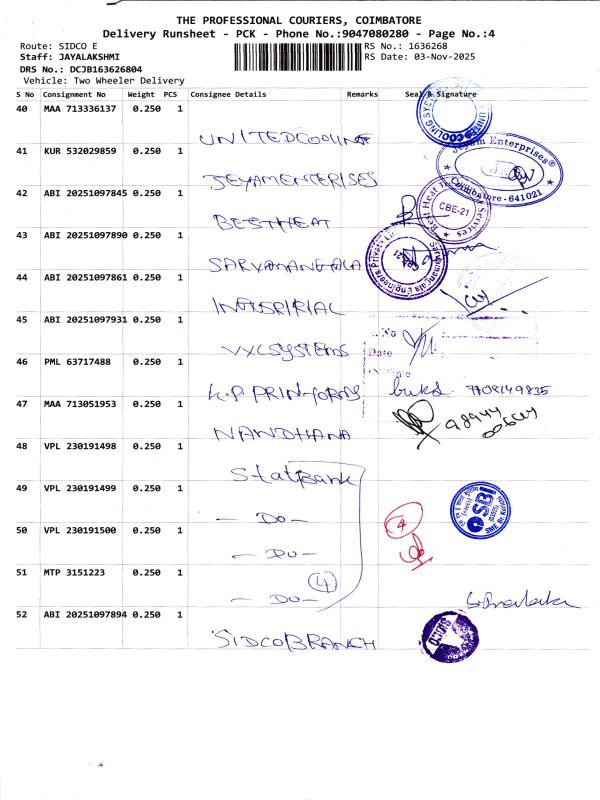 THE PROFESSIONAL COURIERS, COIMBATORE
Delivery Runsheet - PCK - Phone No.:9047080280 - Page No.:4
Route: SIDCO E
RS No.: 1636268
Staff: JAYALAKSHMI
RS Date: 03-Nov-2025
DRS No.: DCJB163626804
Vehicle: Two Wheeler Delivery
S No Consignment No Weight PCS Consignee Details Remarks Seal & Signature
40 MAA 713336137 0.250 1
UNITEDCOOLING
41 KUR 532029859 0.250 1
Jeyam Enterprises®
Coimbatore - 641021
JEYAMENTERISES
42 ABI 20251097845 0.250 1
Best Heat
Services
CBE-21
BESTHEAT
43 ABI 20251097890 0.250 1
Sarvamangala Engineers Private
SARVAMANGALA
44 ABI 20251097861 0.250 1
45 ABI 20251097931 0.250 1
No
Date
VXLSYSTEMS
46 PML 63717488 0.250 1
K.P. PRINFORMS
47 MAA 713051953 0.250 1
NANDHANA
48 VPL 230191498 0.250 1
StatBank
49 VPL 230191499 0.250 1
SBI
- DO -
4
50 VPL 230191500 0.250 1
- DO -
51 MTP 3151223 0.250 1
4
- DO -
52 ABI 20251097894 0.250 1
SIDCO
SIDCOBRANCH